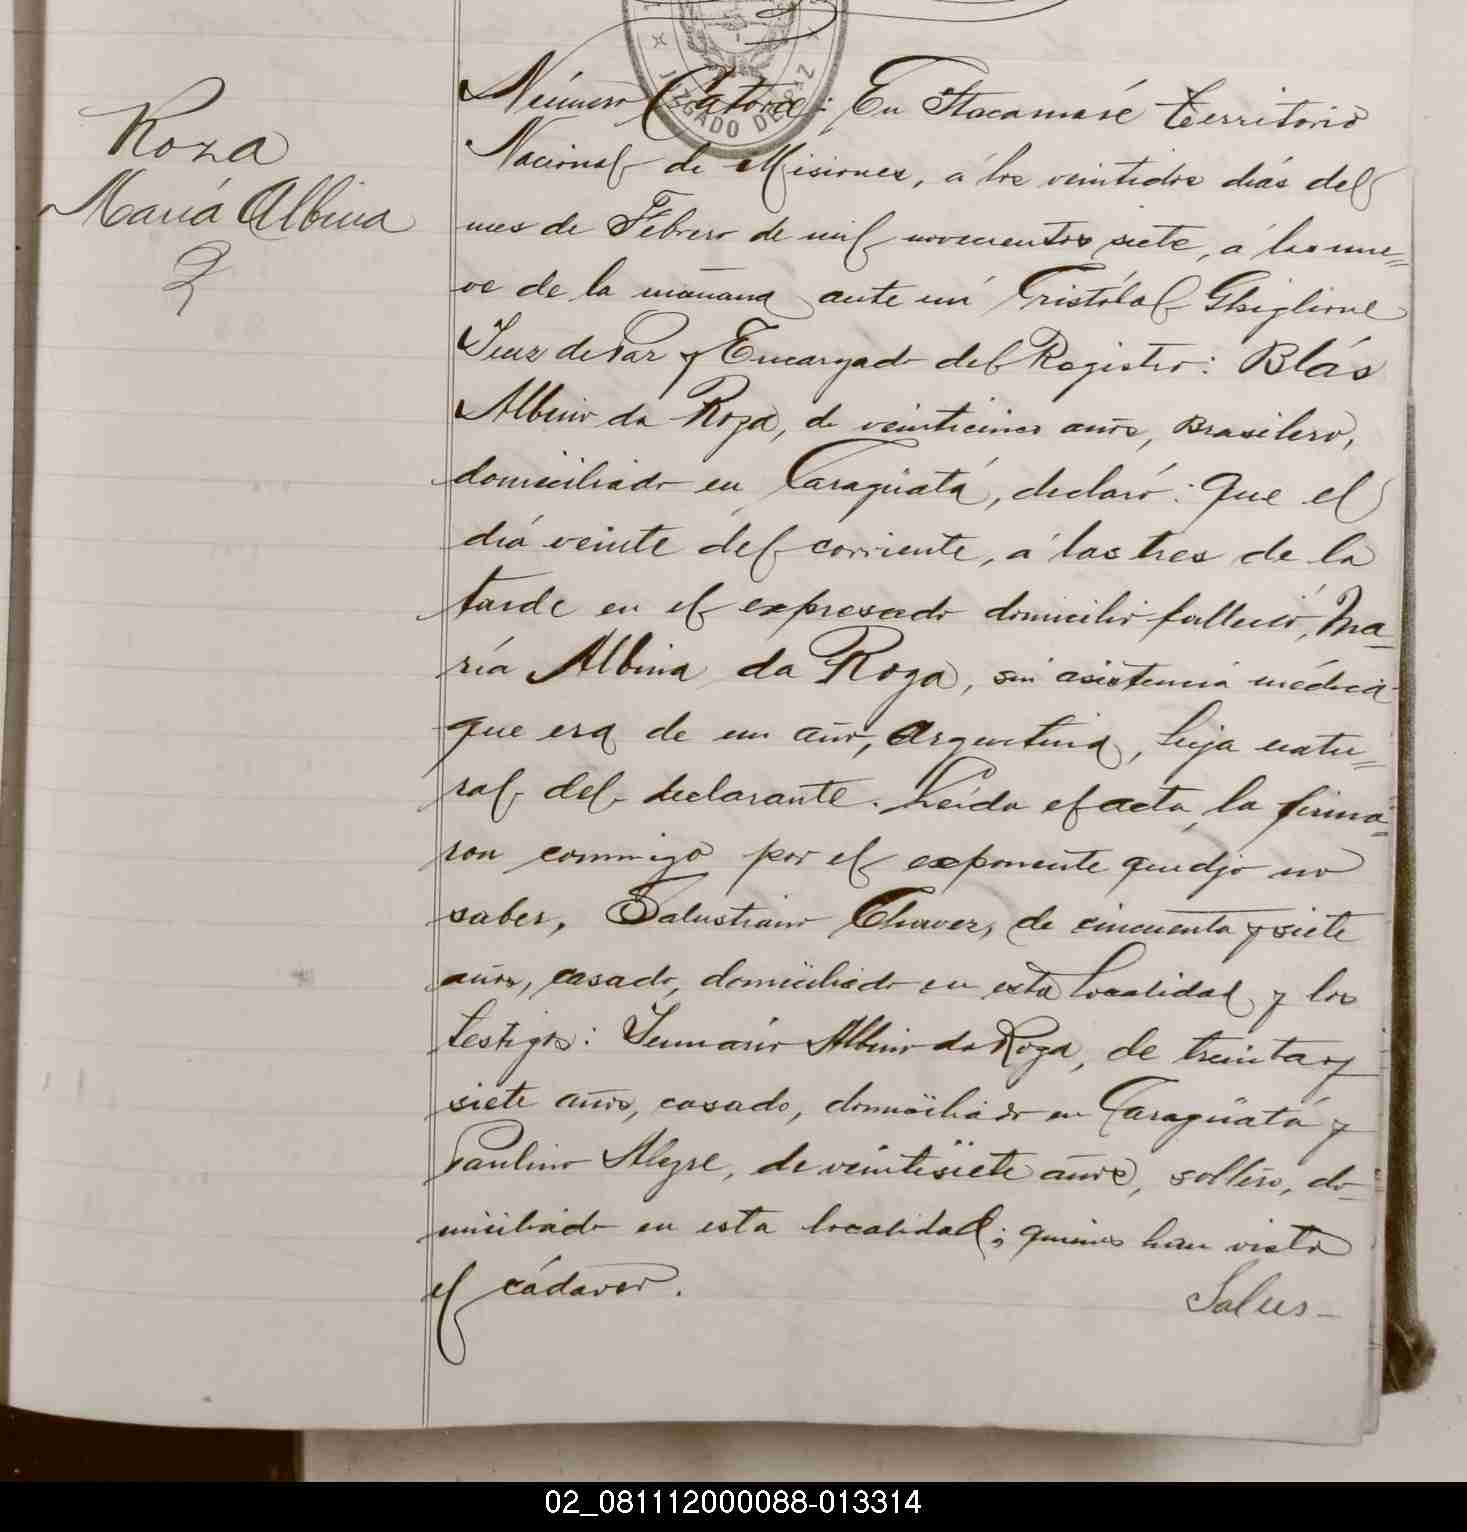 JUZGADO DE PAZ
Roza
María Albina
Número Catorce: En Itacaruaré Territorio
Nacional de Misiones, á los veintidos diás del
mes de Febrero de mil novecientos siete, á las nue=
ve de la mañana ante mí Cristóbal Ghiglione
Juez de Paz y Encargado del Registro: Blás
Albino da Roza, de veinticinco años, Brasilero,
domiciliado en Taragüatá, declaró: Que el
diá veinte del corriente, á las tres de la
tarde en el expresado domicilio falleció, Ma=
ría Albina da Roza, sin asistencia médica
que era de un año, Argentina, hija natu=
ral del declarante. Leída el acta la firma=
ron conmigo por el exponente que dijo no
saber, Salustiano Chavez, de cincuenta y siete
años, casado, domiciliado en esta localidad y los
testigos: Albino da Roza, de treinta y
siete años, casado, domiciliado en Taragüatá y
Paulino Alegre, de veintisiete años, soltero, do-
miciliado en esta localidad; quienes han visto
el cádaver. Salus-
02_081112000088-013314